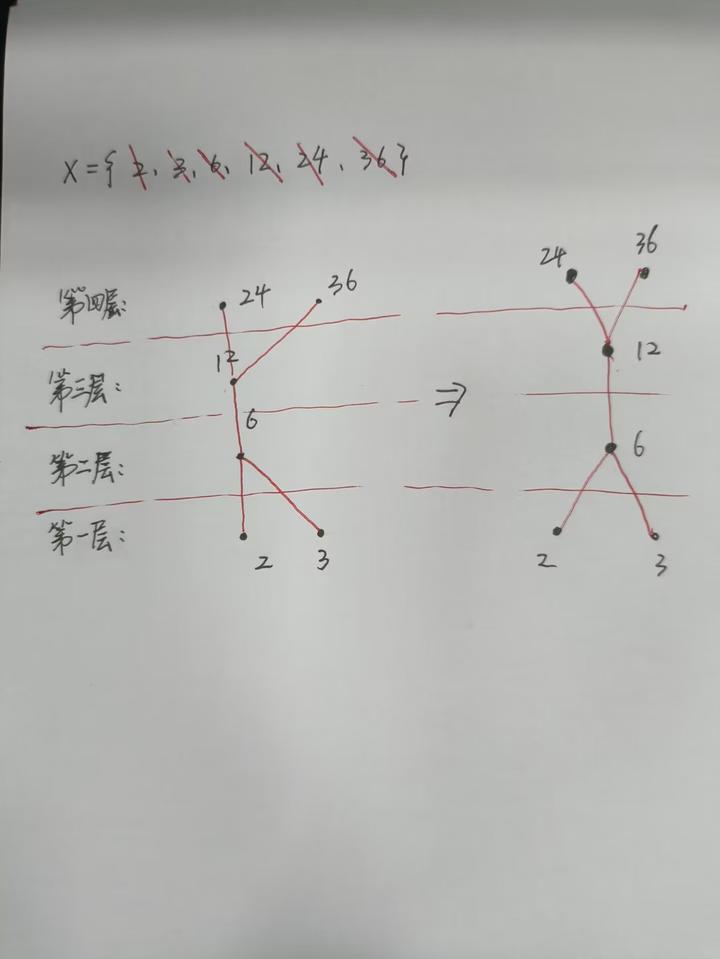 X={2,3,6,12,24,36}
24
36
36
第四层:
24
12
12
第三层:
⇒
6
6
第二层:
第一层:
2
3
2
3